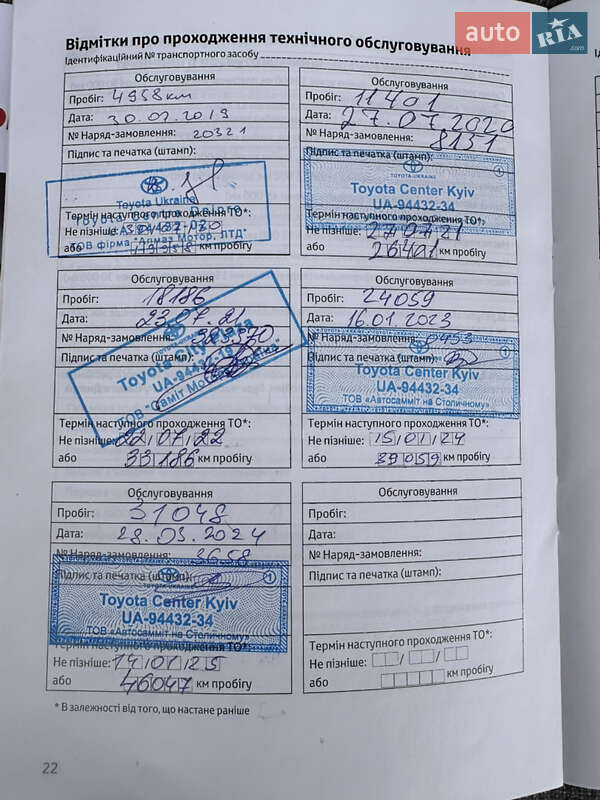 auto RIA.com
Відмітки про проходження технічного обслуговування
Ідентифікаційний № транспортного засобу
Обслуговування
Пробіг: 4958км
Дата: 30.07.2019
№ Наряд-замовлення: 20321
Підпис та печатка (штамп):
Toyota Ukraine
Термін наступного проходження ТО*:
Не пізніше:
або км пробігу
ТОВ фірма "Алмаз Мотор, ЛТД"
Обслуговування
Пробіг: 11401
Дата: 27.07.2020
№ Наряд-замовлення: 8151
Підпис та печатка (штамп):
TOYOTA UKRAINE
Toyota Center Kyiv
UA-94432-34
Термін наступного проходження ТО*:
Не пізніше: 27 07 21
або 26401 км пробігу
Обслуговування
Пробіг: 18186
Дата: 23.07.21
№ Наряд-замовлення:
Підпис та печатка (штамп):
Toyota City Plaza
UA-94432-19
Термін наступного проходження ТО*:
Не пізніше: 22/07/22
або 33186 км пробігу
Обслуговування
Пробіг: 24059
Дата: 16.01.2023
№ Наряд-замовлення: 0453
Підпис та печатка (штамп):
Toyota Center Kyiv
UA-94432-34
ТОВ «Автосамміт на Столичному»
Термін наступного проходження ТО*:
Не пізніше: 15/01/24
або 39059 км пробігу
Обслуговування
Пробіг: 31048
Дата: 28.03.2024
№ Наряд-замовлення: 3658
Підпис та печатка (штамп):
TOYOTA UKRAINE
Toyota Center Kyiv
UA-94432-34
ТОВ «Автосамміт на Столичному»
Термін наступного проходження ТО*:
Не пізніше: 14/01/25
або 46047 км пробігу
Обслуговування
Пробіг:
Дата:
№ Наряд-замовлення:
Підпис та печатка (штамп):
Термін наступного проходження ТО*:
Не пізніше: / /
або км пробігу
* В залежності від того, що настане раніше
22